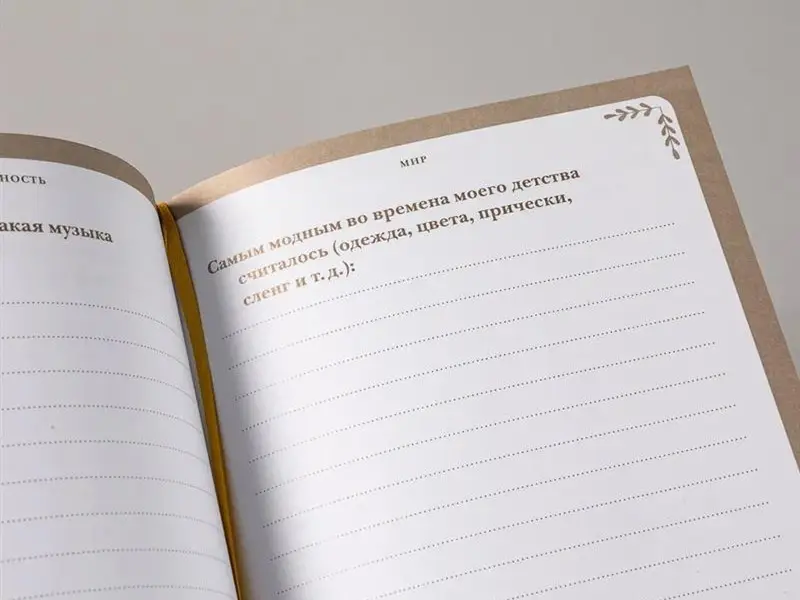 НОСТЬ
акая музыка
МИР
Самым модным во времена моего детства
считалось (одежда, цвета, прически,
сленг и т. д.):